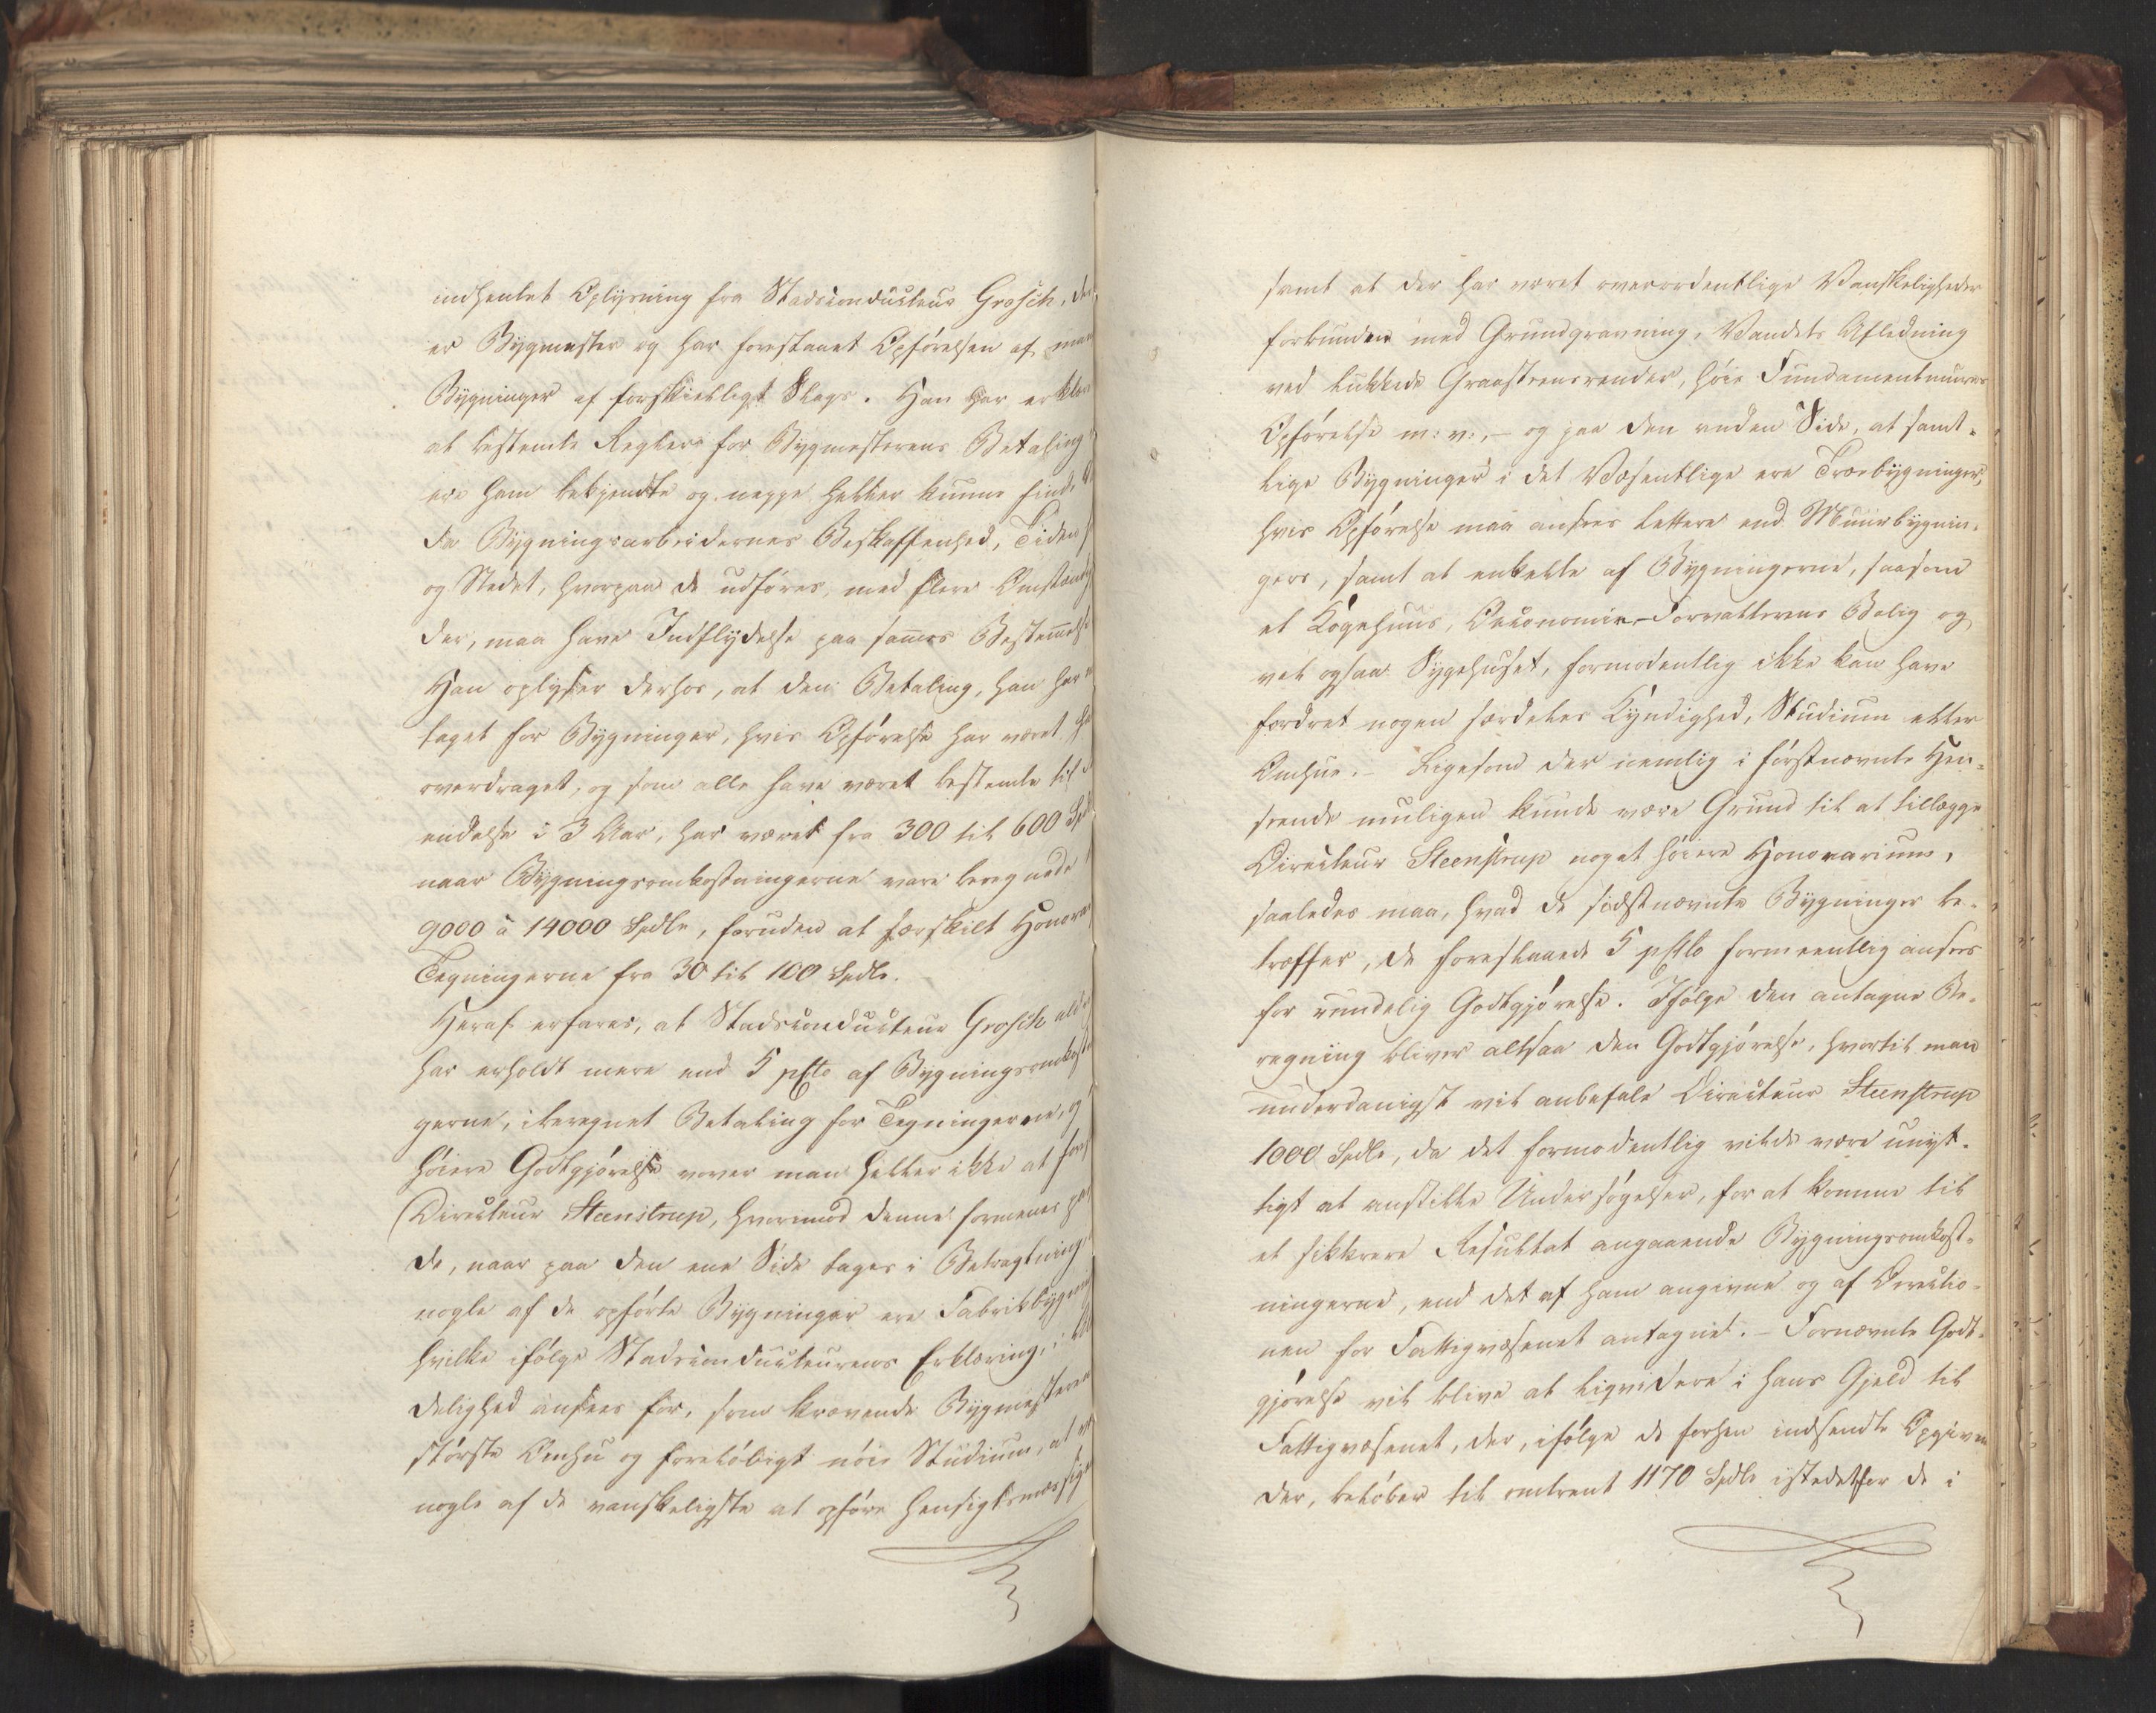 indhentet Oplysning fra Stadsconducteur Grosch, der
er Bygmester og har forestaaet Opførelsen af man
Bygninger af forskielligt Slags. Han har erklæ
at bestemte Regler for Bygmesterens Betaling
ere ham bekjendte og neppe heller kunne finde
da Bygningsarbeidernes Beskaffenhed, Tiden
og Stedet, hvorpaa de udføres, med flere Omstændig
der, maa have Indflydelse paa sammes Bestemmelse
Han oplyser derhos, at den Betaling, han har
taget for Bygninger, hvis Opførelse har været ha
overdraget, og som alle have været bestemte til
endelse i 3 Aar, har været fra 300 til 600 Spd
naar Bygningsomkostningerne vare beregnede
9000 à 14000 Spdlr, foruden at særskilt Honorar
Tegningerne fra 30 til 100 Spdlr.
Heraf erfares, at Stadsconducteur Grosch aldri
har erholdt mere end 5 pCto af Bygningsomkost
gerne, iberegnet Betaling for Tegningerne, og
høiere Godtgjørelse vover man heller ikke at fore
Directeur Steenstrup, hvormod denne formenes pas
de, naar paa den ene Side tages i Betragtning,
nogle af de opførte Bygninger ere Fabrikbygni
hvilke ifølge Stadsconducteurens Erklæring, i Al
delighed ansees for, som krævende Bygmesteren
største Omhu og foreløbigt nøie Studium, at
nogle af de vanskeligste at opføre hensigtsmæssige
samt at der har været overordentlige Vanskeligheder
forbunden med Grundgravning, Vandets Afledning
ved lukkede Graasteensrender, høie Fundamentmures
Opførelse m: v:, – og paa den anden Side, at samt-
lige Bygninger i det Væsentlige ere Træbygninger,
hvis Opførelse maa ansees lettere end Muurbygnin-
gers, samt at enkelte af Bygningerne, saasom
et Kogehuus, Oeconomie-Forvalterens Bolig og
vel ogsaa Sygehuset, formodentlig ikke kan have
fordret nogen særdeles Kyndighed, Studium eller
Omhue. – Ligesom der nemlig i førstnævnte Hen-
seende muligen kunde være Grund til at tillægge
Directeur Steenstrup noget høiere Honorarium,
saaledes maa, hvad de sidstnævnte Bygninger be-
træffer, de foreslaaede 5 pCto formeentlig ansees
for rundelig Godtgjørelse. Ifølge den antagne Be-
regning bliver altsaa den Godtgjørelse, hvortil man
underdanigst vil anbefale Directeur Steenstrup
1000 Spdlr, da det formodentlig vilde være unyt-
tigt at anstille Undersøgelser, for at komme til
et sikkrere Resultat angaaende Bygningsomkost-
ningerne, end det af ham angivne og af Directio-
nen for Fattigvæsenet antagnet. – Fornævnte Godt-
gjørelse vil blive at liqvidere i hans Gjeld til
Fattigvæsenet, der, ifølge de forhen indsendte Opgiven
der, beløber til omtrent 1170 Spdlr istedetfor de i